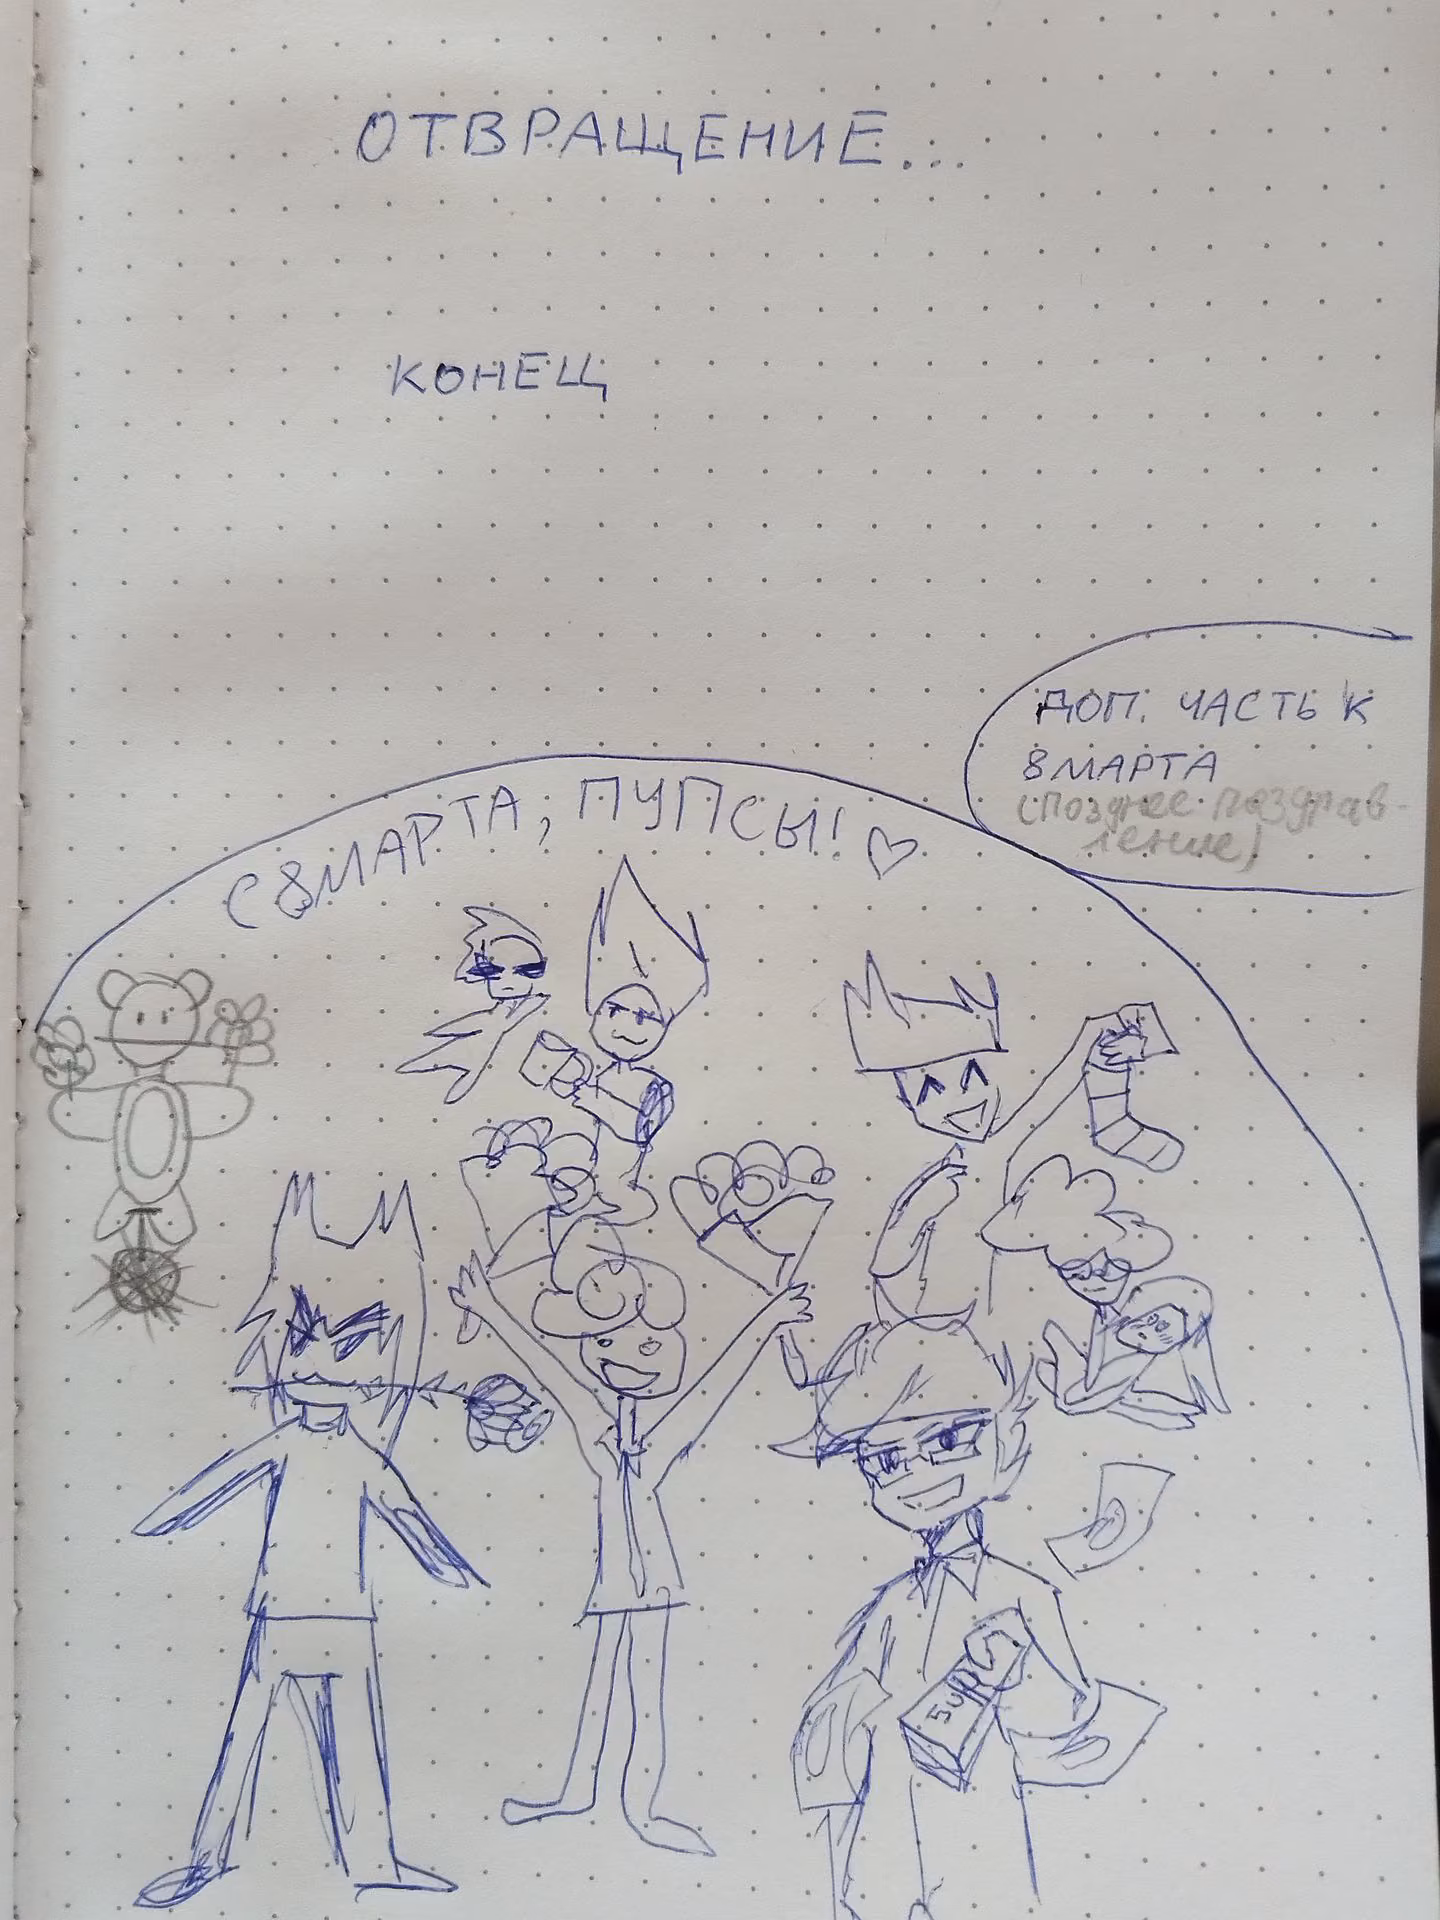 ОТВРАЩЕНИЕ...
КОНЕЦ
ДОП. ЧАСТЬ К
8 МАРТА
(позднее поздрав-
ление)
С 8 МАРТА, ПУПСЫ! ♡